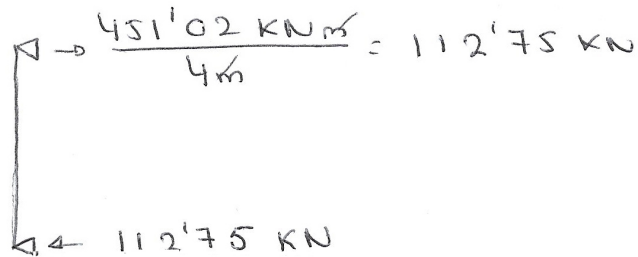 → 451'02 KNm / 4m = 112'75 KN
← 112'75 KN